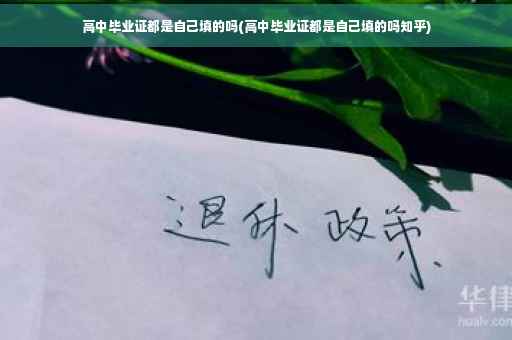 高中毕业证都是自己填的吗(高中毕业证都是自己填的吗知乎)
退休 政策
华律
hualv.com